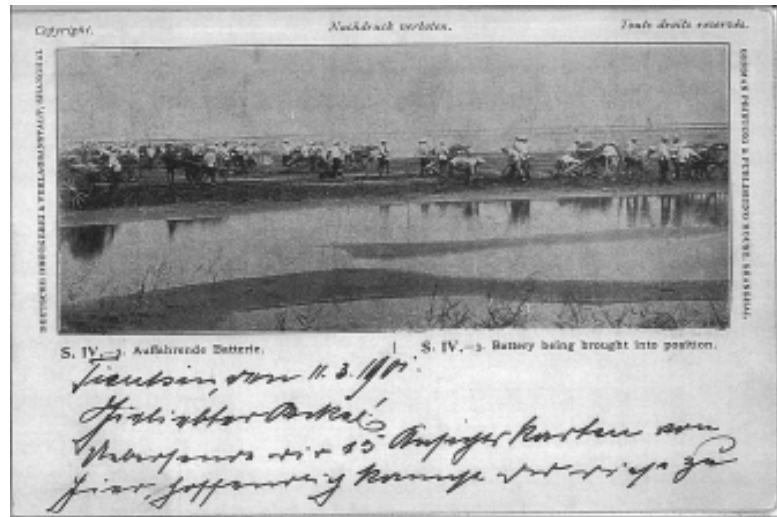 Copyright.
Nachdruck verboten.
Toute droits reservés.
DEUTSCHE DRUCKEREI & VERLAGSANSTALT, SHANGHAI.
GERMAN PRINTING & PUBLISHING HOUSE, SHANGHAI.
S. IV.—3. Auffahrende Batterie.
S. IV.—3. Battery being brought into position.
Tientsin den 11.3.1901.
Geliebter
Uebersende dir 85 Ansichtskarten von
hier, hoffendlich kannst du diese zu